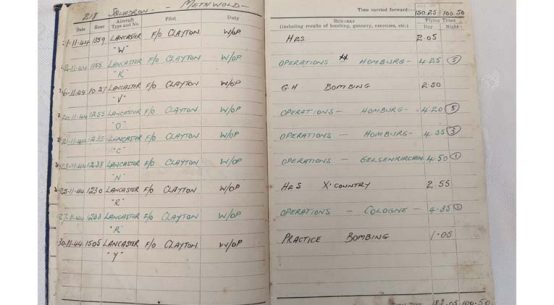 218 SQUADRON - METHWOLD -
Date Hour Aircraft Type and No. Pilot Duty
LANCASTER F/O CLAYTON W/OP
"W"
LANCASTER F/O CLAYTON W/OP
"K"
LANCASTER F/O CLAYTON W/OP
"V"
LANCASTER F/O CLAYTON W/OP
"O"
LANCASTER F/O CLAYTON W/OP
"C"
LANCASTER F/O CLAYTON W/OP
"N"
1230 LANCASTER F/O CLAYTON W/OP
"R"
LANCASTER F/O CLAYTON W/OP
"R"
30-11-44 1505 LANCASTER F/O CLAYTON W/OP
"Y"
Time carried forward:— 150.25 100.50
REMARKS Flying Times
(including results of bombing, gunnery, exercises, etc.) Day Night
HRS 2.05
OPERATIONS HOMBURG - 4.25 ③
GH BOMBING 2.50
OPERATIONS — HOMBURG- 4.20 ⑤
OPERATIONS — HOMBURG- 4.35 ③
OPERATIONS — GELSENKIRCHEN 4.50 ①
HRS X'COUNTRY 2.55
OPERATIONS — COLOGNE - 4.35
PRACTICE BOMBING 1.05
100.50